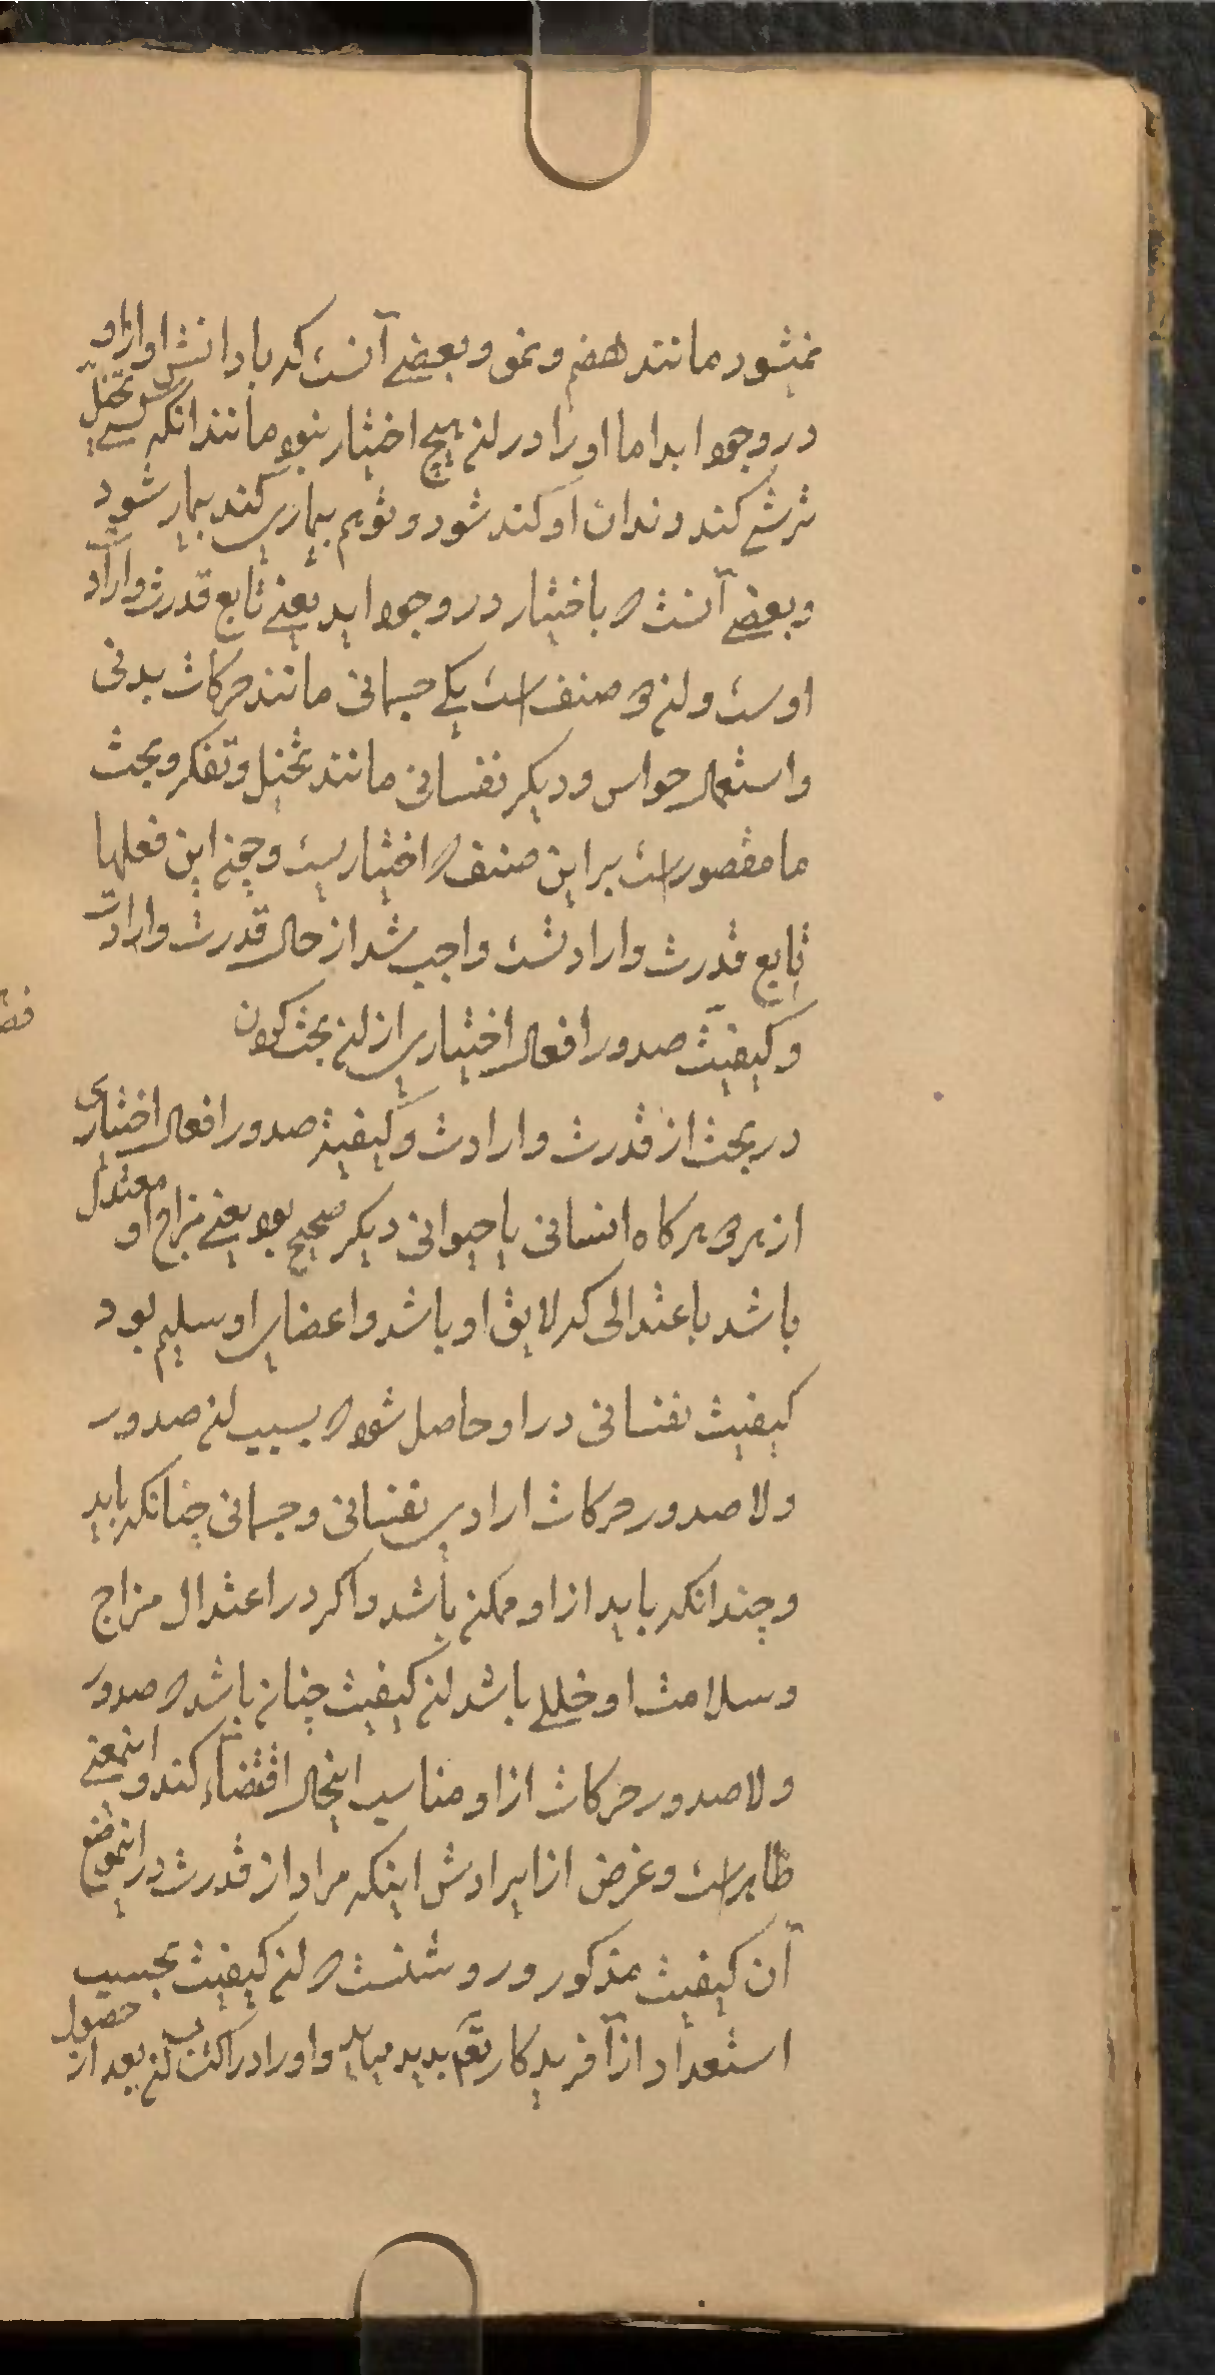 نمیشود مانند هضم و نمو و بعضی آنست که با دانش او از او
در وجود اید اما او را در ان هیچ اختیار نبود مانند انکه کسی تخیل
ترشی کند دندان او کند شود و توهم بیماری کند بیمار شود
و بعضی آنست که باختیار در وجود اید یعنی تابع قدرت و ارادت
اوست و ان دو صنف است یکی جسمانی مانند حرکات بدنی
و استعمال حواس و دیکر نفسانی مانند تخیل و تفکر و بحث
ما مقصور است بر این صنف که اختیاریست و چون این فعلها
تابع قدرت و ارادتست واجب شد از حال قدرت و ارادت
و کیفیت صدور افعال اختیاری از ان بحث کردن
در بحث از قدرت و ارادت و کیفیت صدور افعال اختیاری
از هر دو هرکاه انسانی یا حیوانی دیکر صحیح بود یعنی مزاج او معتدل
باشد باعتدالی که لایق او باشد و اعضای او سلیم بود
کیفیت نفسانی در او حاصل شود که بسبب ان صدور
و لا صدور حرکات ارادی نفسانی و جسمانی چنانکه باید
و چندانکه باید از او ممکن باشد و اکر در اعتدال مزاج
و سلامت او خللی باشد ان کیفیت چنان باشد که صدور
و لا صدور حرکات از او مناسب اینحال اقتضاء کند و اینمعنی
ظاهر است و غرض از ایرادش اینکه مراد از قدرت در اینموضع
آن کیفیت مذکور و روشنست که ان کیفیت بحسب
استعداد از آفریدکار تعم بدید میاید و او را در اکتساب ان بعد از حصول